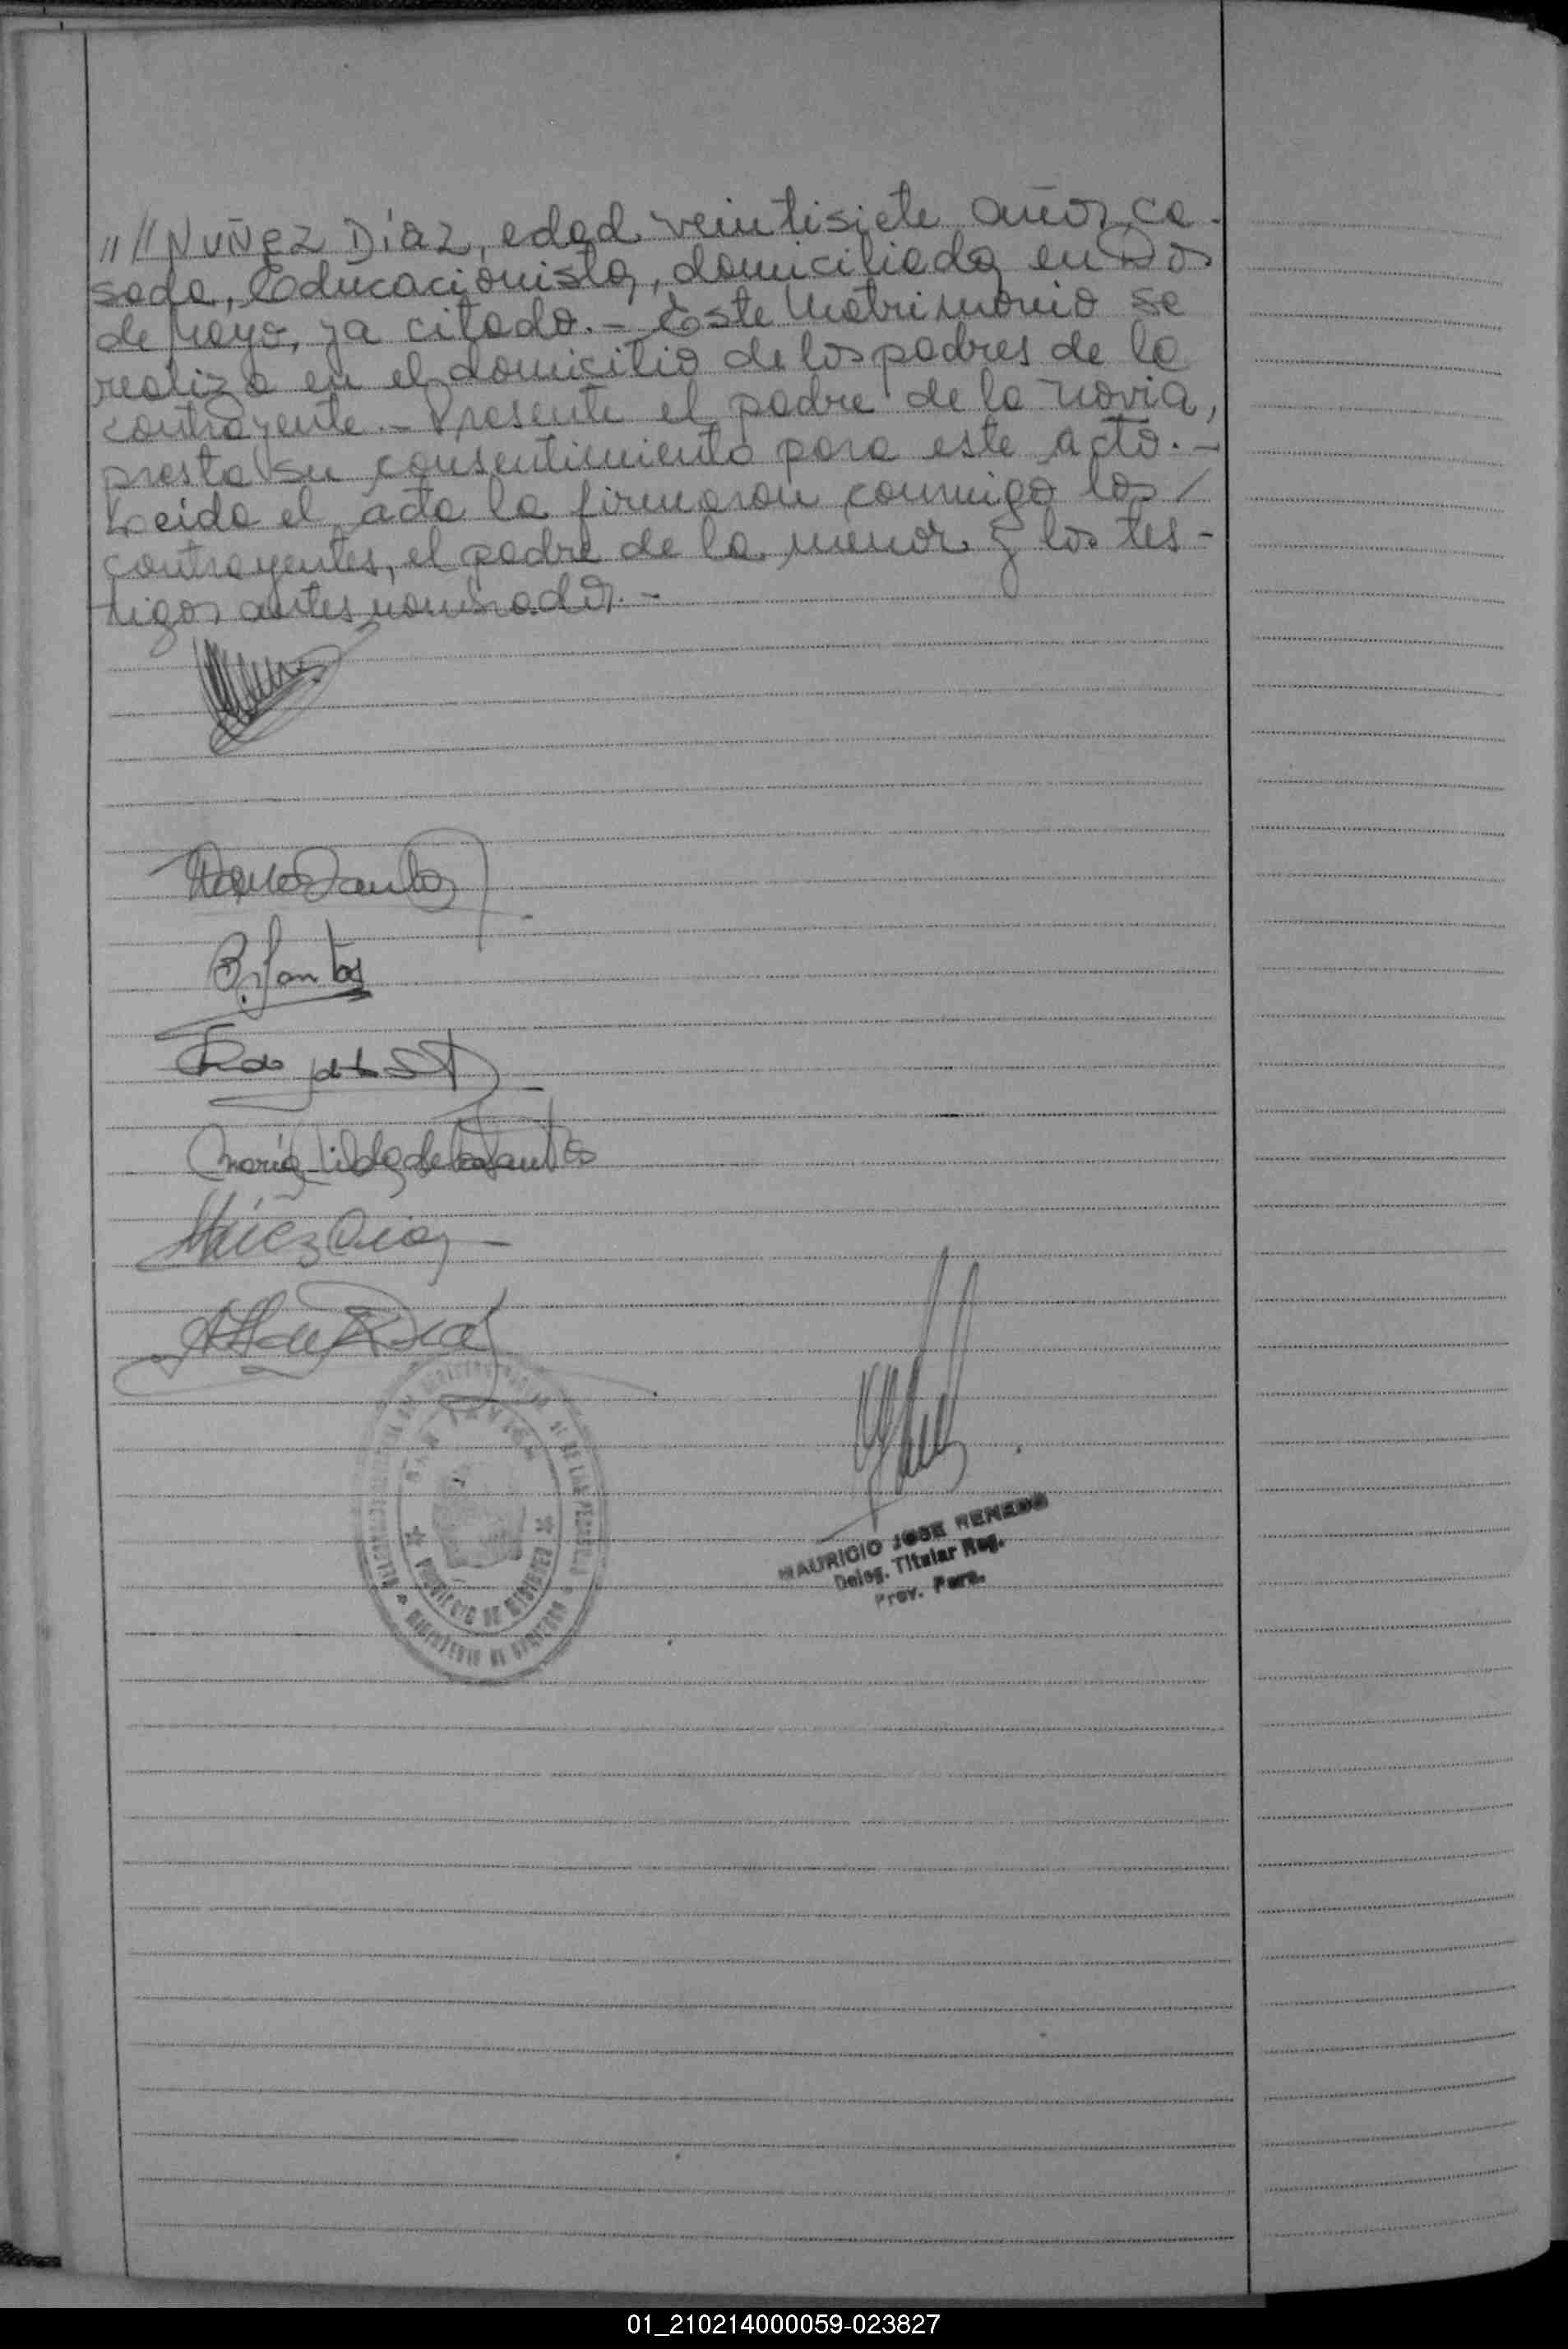 "//NUÑEZ Díaz, edad veintisiete años, ca-
sada, Educacionista, domiciliada en Dos
de Mayo, ya citado.- Este Matrimonio se
realiza en el domicilio de los padres de la
contrayente.- Presente el padre de la novia,
presta su consentimiento para este acto.-
Leida el acta la firmaron conmigo los/
contrayentes, el padre de la menor y los tes-
tigos antes nombrados.-
María
MAURICIO JOSE
Deleg. Titular Reg.
Prov. Pers.
PROVINCIA DE MISIONES
MINISTERIO DE GOBIERNO
DE LAS PERSONAS
01_210214000059-023827